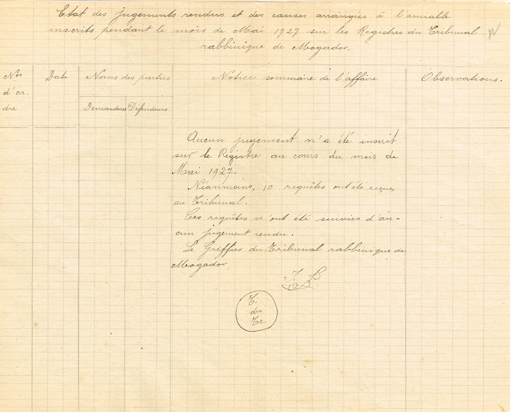 Etat des Jugements rendus et des causes arrangées à l'amiable
inscrits pendant le mois de Mai 1927 sur les Registres du Tribunal
rabbinique de Mogador.
Nos d'or dre
Date
Noms des parties
Demandeurs Défendeurs
Notice sommaire de l'affaire
Observations.
Aucun jugement n'a été inscrit
sur le Registre au cours du mois de
Mai 1927.
Néanmoins, 10 requêtes ont été reçues
au Tribunal.
Ces requêtes n'ont été suivies d'au-
cun jugement rendu.
Le Greffier du Tribunal rabbinique de
Mogador
T.
du
Tr.